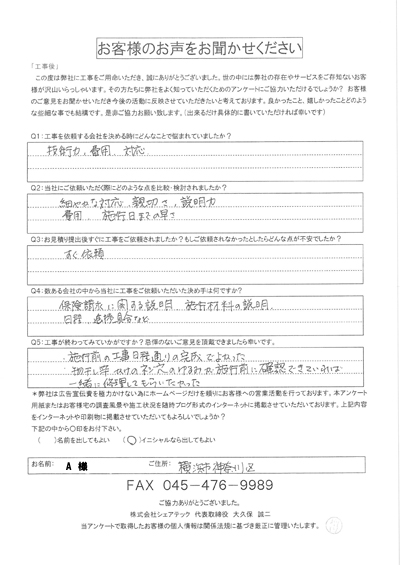 お客様のお声をお聞かせください
「工事後」
この度は弊社に工事をご用命いただき、誠にありがとうございました。世の中には弊社の存在やサービスをご存知ないお客
様が沢山いらっしゃいます。その方たちに弊社をよく知っていただくためのアンケートにご協力いただけるでしょうか? お客
様のご意見をお聞かせいただき今後の活動に反映させていただきたいと考えております。良かったこと、嬉しかったことどのよう
な些細な事でも結構です。是非ご協力お願い致します。(出来るだけ具体的に書いていただければ幸いです)
Q1:工事を依頼する会社を決める時にどんなことで悩まれていましたか?
技術力、費用、対応
Q2:当社にご依頼いただく際にどのような点を比較・検討されましたか?
細やかな対応、親切さ、説明力
費用、施行日までの早さ
Q3:お見積り提出後すぐに工事をご依頼されましたか?もしご依頼されなかったとしたらどんな点が不安でしたか?
すぐ依頼
Q4:数ある会社の中から当社に工事をご依頼いただいた決め手は何ですか?
保険請求に関する説明、施行材料の説明
日程、連携具合など
Q5:工事が終わってみていかがですか?忌憚のないご意見を頂戴できましたら幸いです。
・施行前の工事日程通りの完成でよかった
・物干し竿かけのネジ穴の
施行前に確認できていれば
一緒に修理してもらいたかった
*弊社は広告宣伝費を極力かけない為にホームページだけを頼りにお客様への営業活動を行っております。本アンケート
用紙またはお客様宅の調査風景や施工状況を随時ブログ形式のインターネットに掲載させていただいております。上記内容
をインターネットや印刷物に掲載させていただいてもよろしいでしょうか?
下記の中から〇印をお付下さい。
( )名前を出してもよい (〇)イニシャルなら出してもよい
お名前: A 様 ご住所: 横浜市神奈川区
FAX 045-476-9989
ご協力ありがとうございました。
株式会社シェアテック 代表取締役 大久保 誠二
当アンケートで取得したお客様の個人情報は関係法規に基づき厳正に管理いたします。